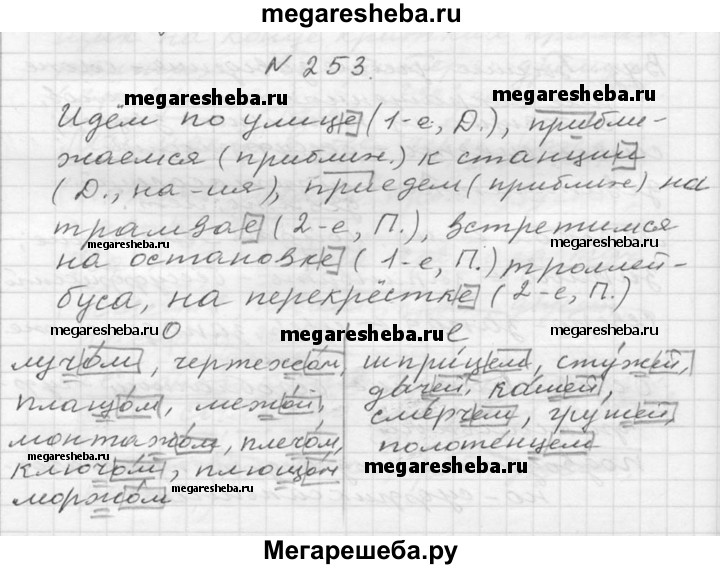 megaresheba.ru
N 253.
megaresheba.ru megaresheba.ru
Идём по улице (1-е, Д.), прибли-
жаемся (приближ.) к станции
(Д., на -ия), приедем (приближ) на
трамвае (2-е, П.), встретимся
megaresheba.ru megaresheba.ru
на остановке (1-е, П.) троллей-
буса, на перекрёстке (2-е, П.)
megaresheba.ru megaresheba.ru megaresheba.ru
о е
лучом, чертежом, шприцем, стужей,
плащом, межой, дачей, кашей,
монтажом, плечом, смерчем, грушей,
ключом, плющом полотенцем
моржом
megaresheba.ru megaresheba.ru
Мегарешеба.ру